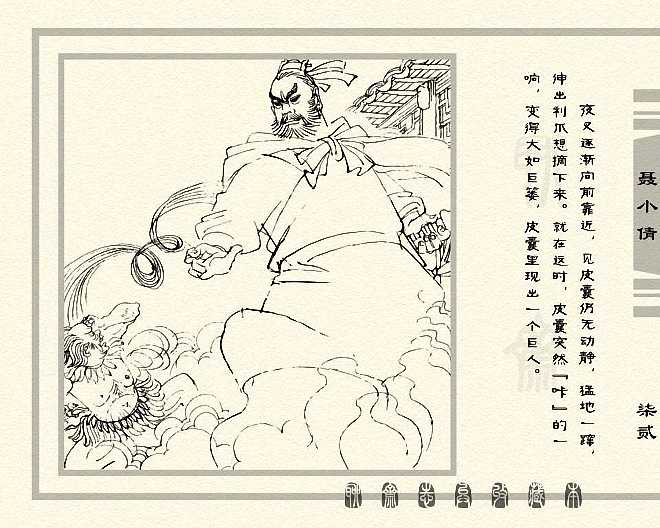 夜叉逐渐向前靠近，见皮囊仍无动静，猛地一蹿，
伸出利爪想摘下来。就在这时，皮囊突然『咔』的一
响，变得大如巨篓，皮囊里现出一个巨人。
聂小倩
柒贰
聊斋志异收藏本